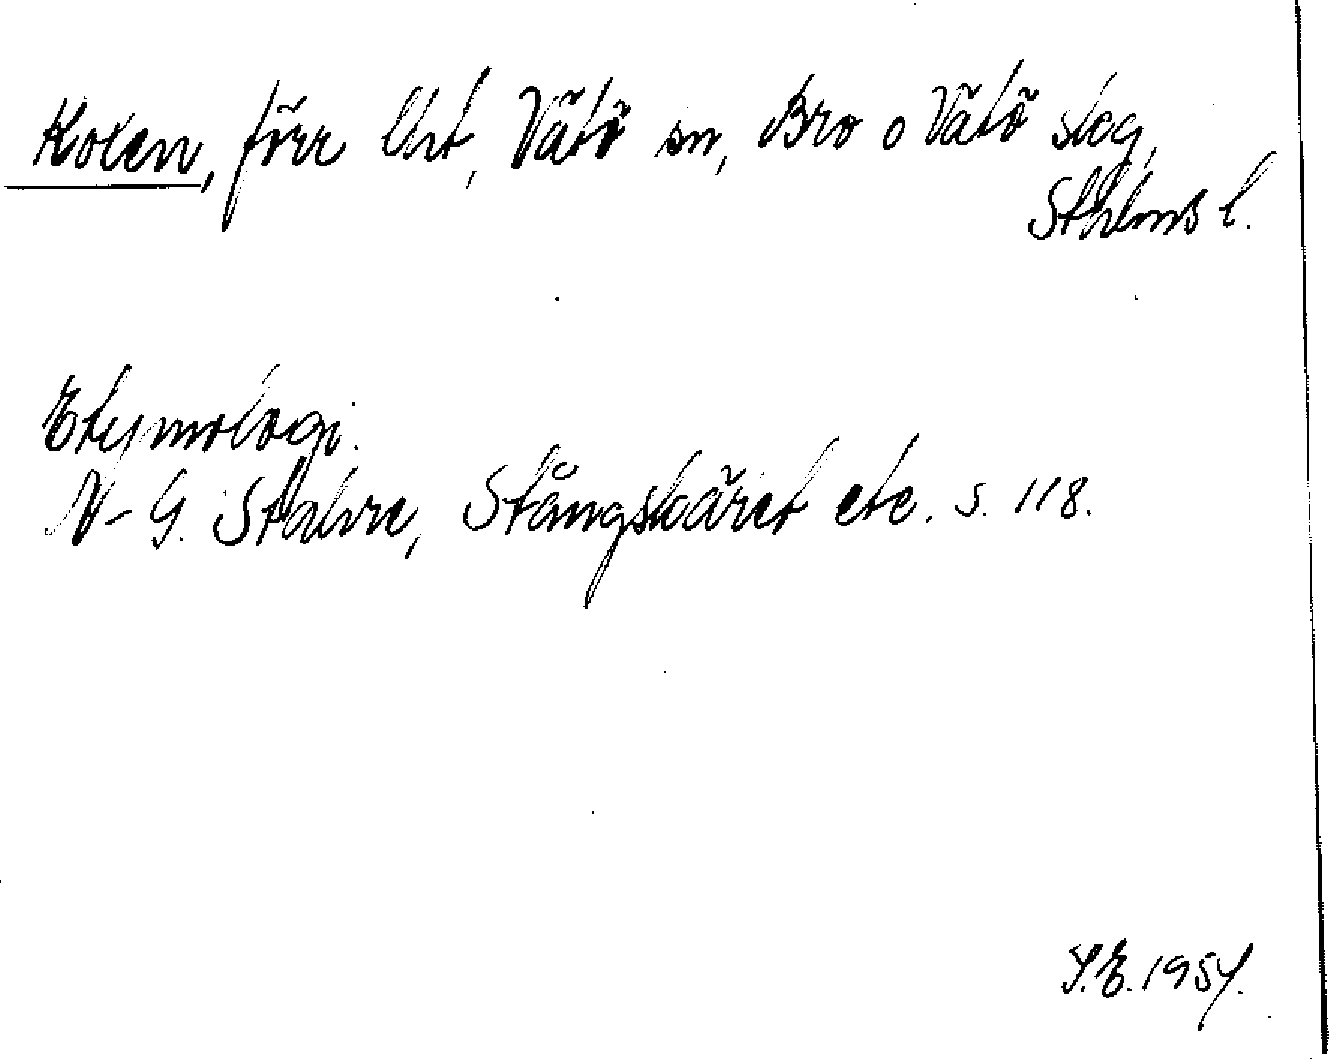 Kolen, förr Uht, Vätö sn, Bro o Vätö skg,
Sthlms l.
Etymologi.
N-G. Stahre, Stångskäret etc. s. 118.
Y.E. 1954.